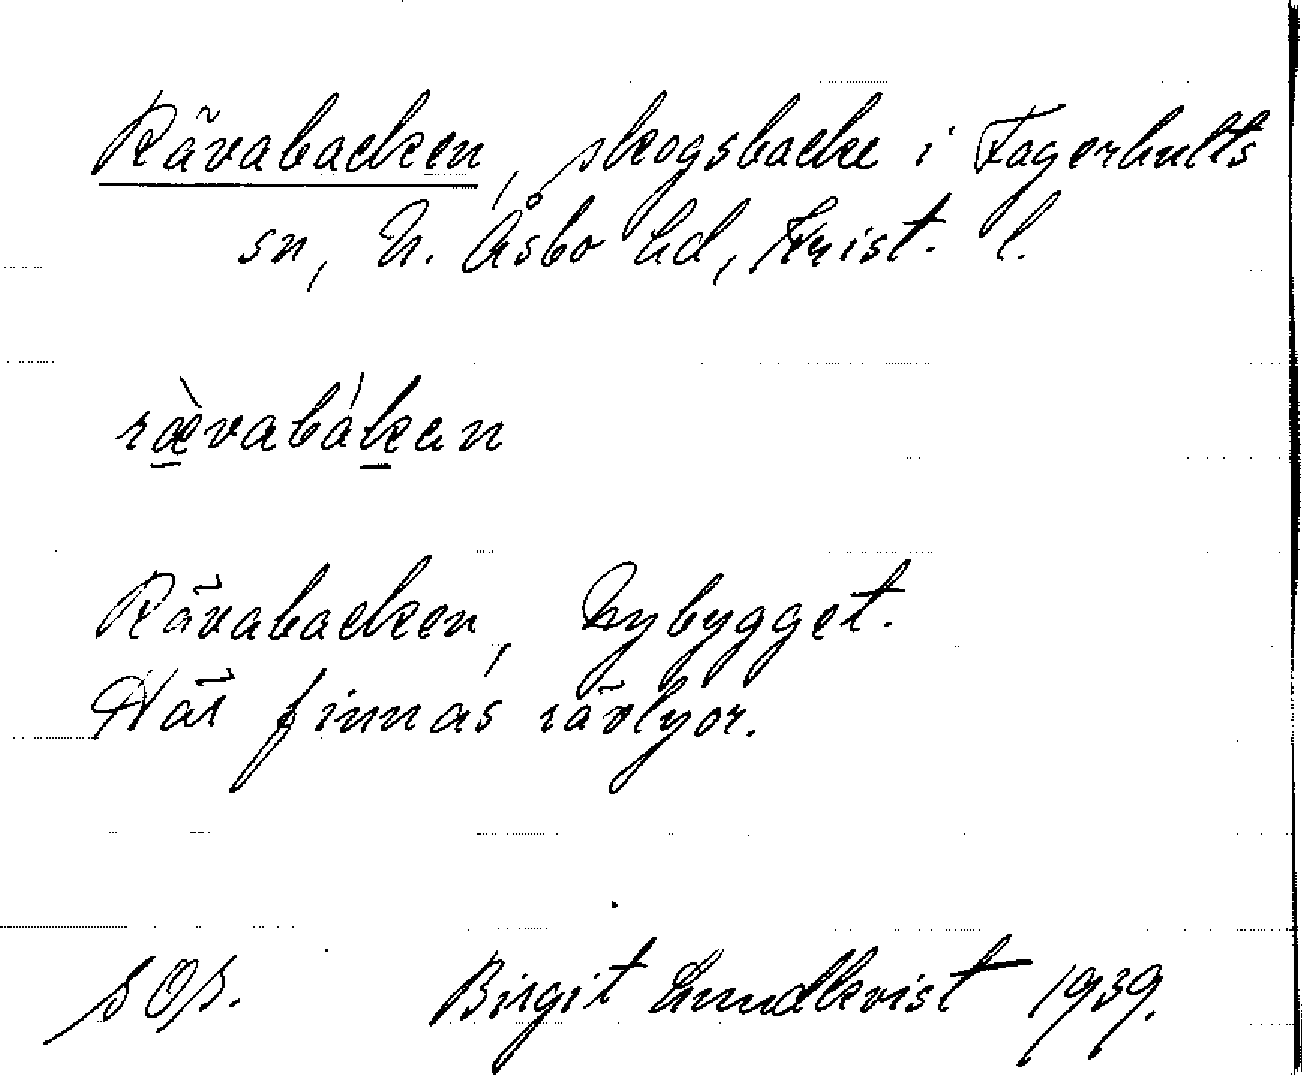 Rävabacken, skogsbacke i Fagerhults
sn, N. Åsbo hd, Krist. l.
ræ̀vabákan
Rävabacken, Nybygget.
Här finnas rävlyor.
SOS. Birgit Lundkvist 1939.